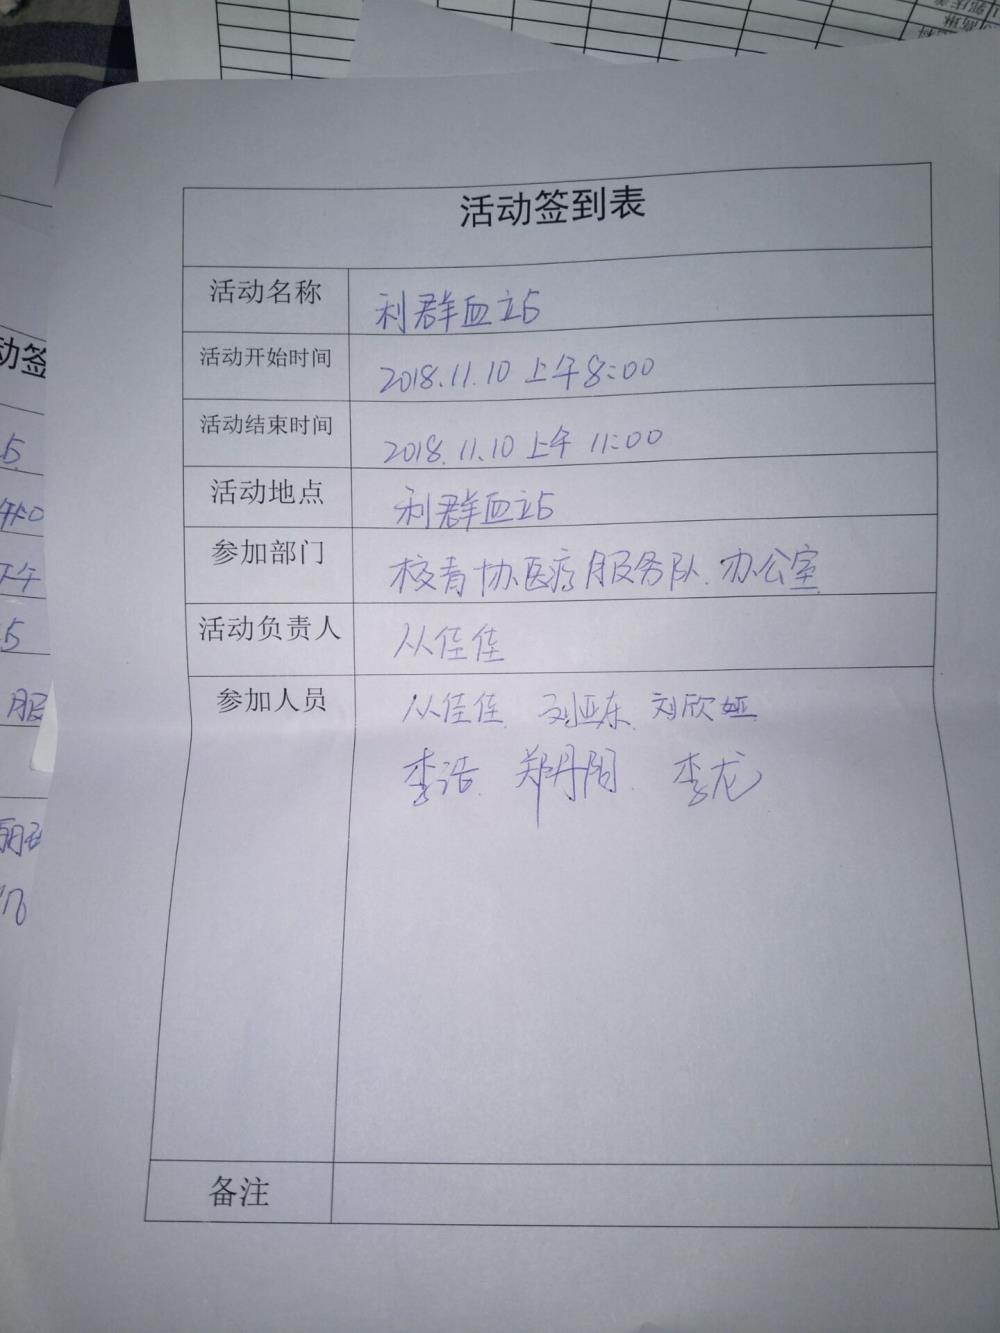 活动签到表
活动名称 利群血站
活动开始时间 2018.11.10 上午8:00
活动结束时间 2018.11.10 上午 11:00
活动地点 利群血站
参加部门 校青协医疗服务队、办公室
活动负责人 从佳佳
参加人员 从佳佳、刘亚东、刘欣娅
李浩、郑丹阳、李龙
备注
动签
服